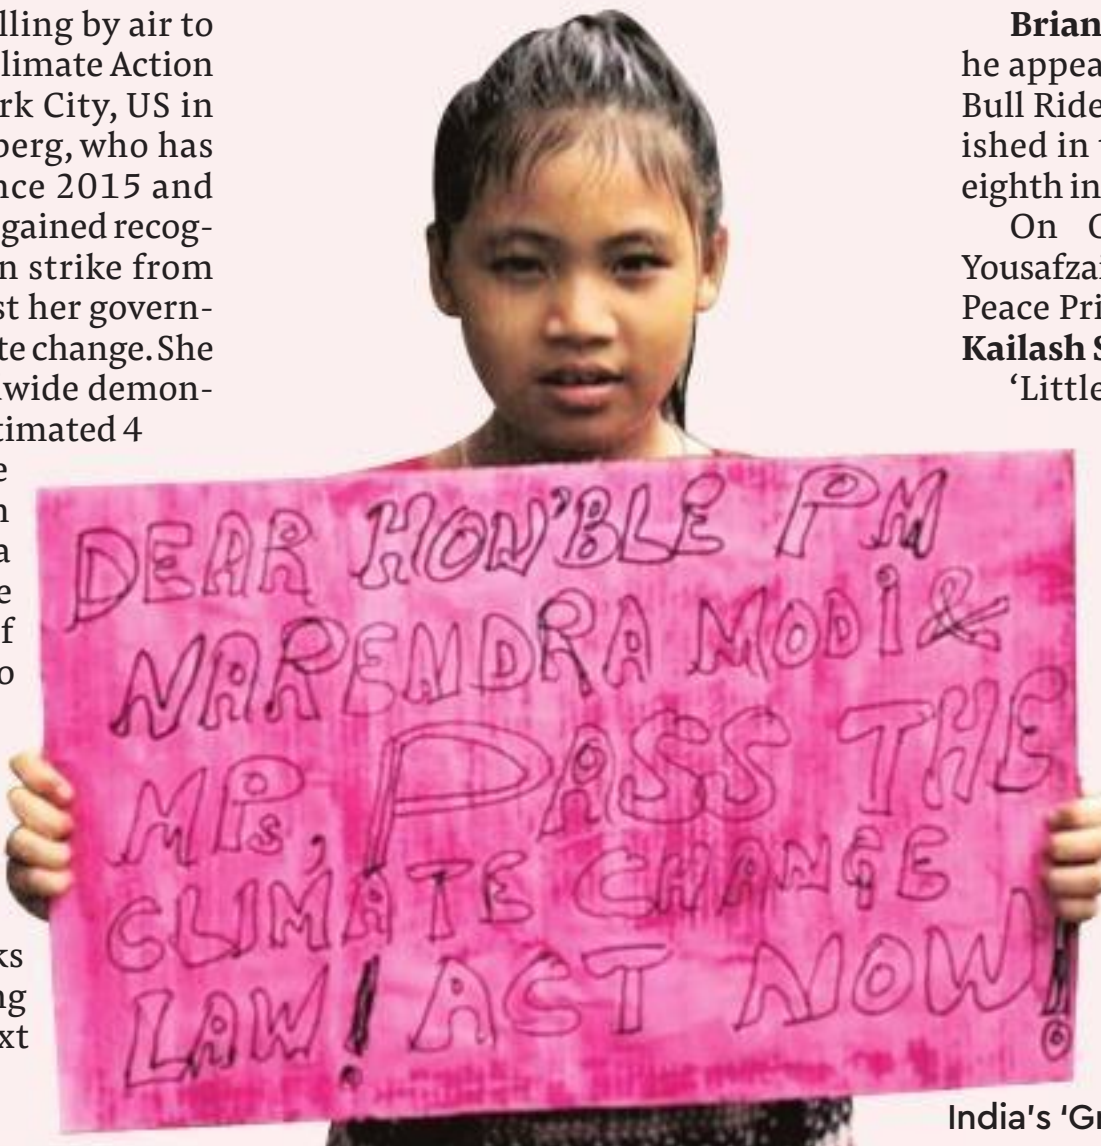 lling by air to
limate Action
rk City, US in
berg, who has
nce 2015 and
gained recog-
n strike from
st her govern-
te change. She
wide demon-
timated 4
e
n
a
e
f
o
ks
ng
xt
DEAR HON'BLE PM
NARENDRA MODI &
MPs, PASS THE
CLIMATE CHANGE
LAW! ACT NOW!
Brian
he appea
Bull Ride
ished in
eighth in
On
Yousafzai
Peace Pri
Kailash S
‘Little
India's 'Gr